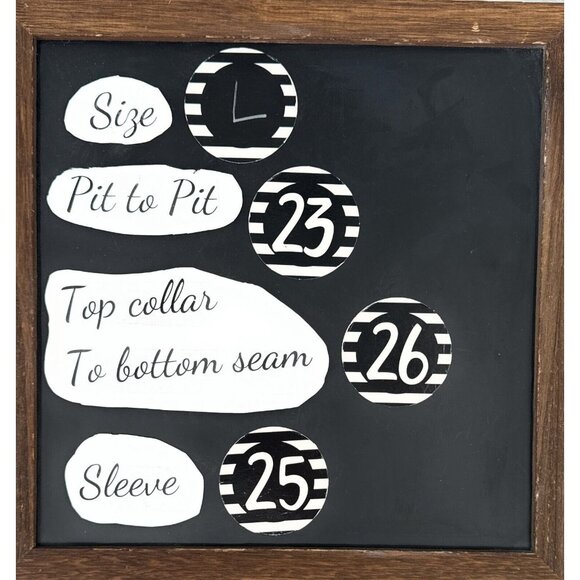 Size L
Pit to Pit 23
Top collar
To bottom seam 26
Sleeve 25